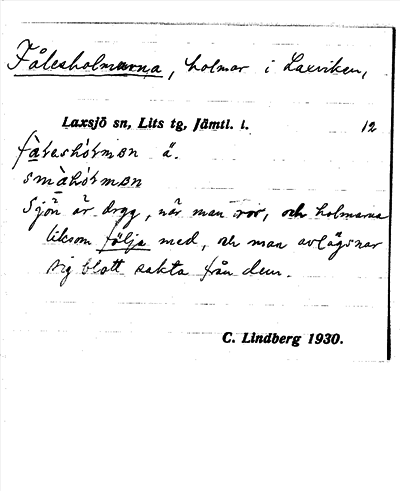 Fålesholmarna, holmar i Laxviken,
Laxsjö sn, Lits tg, Jämtl. l. 12
ä.
Sjön är dryg, när man ror, och holmarna
liksom följa med, och man avlägsnar
sig blott sakta från dem.
C. Lindberg 1930.